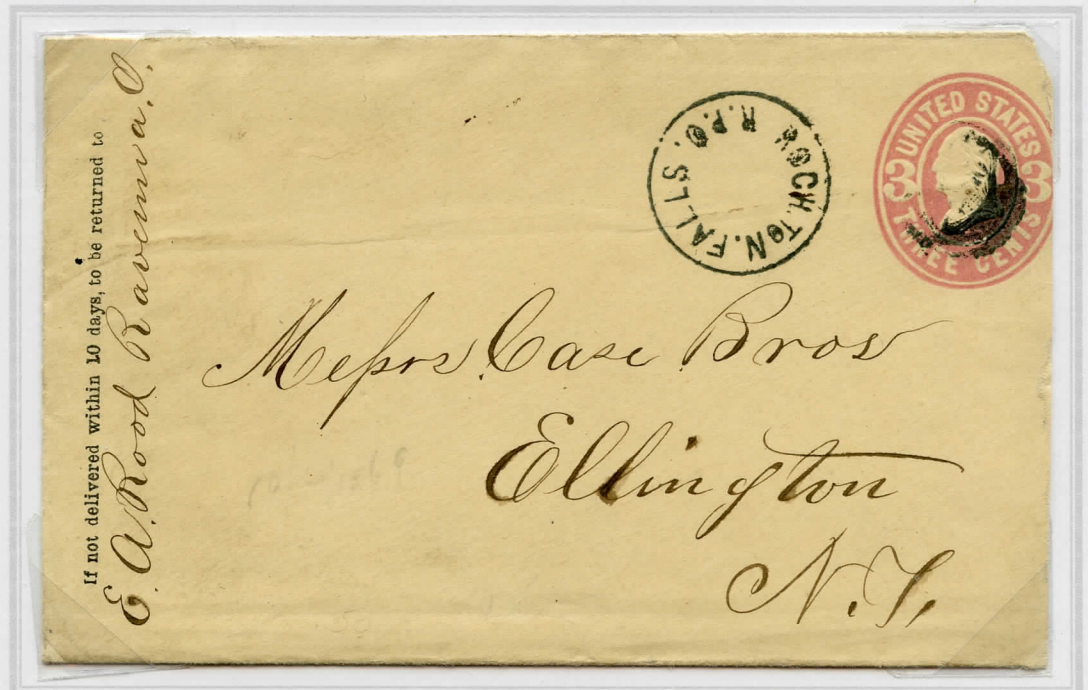 If not delivered within 10 days, to be returned to
E. A. Rood Ravenna. O.
N. FALLS. & ROCH. TON. R.P.O.
UNITED STATES
3 3
THREE CENTS
Messrs. Case Bros
Ellington
N. Y.